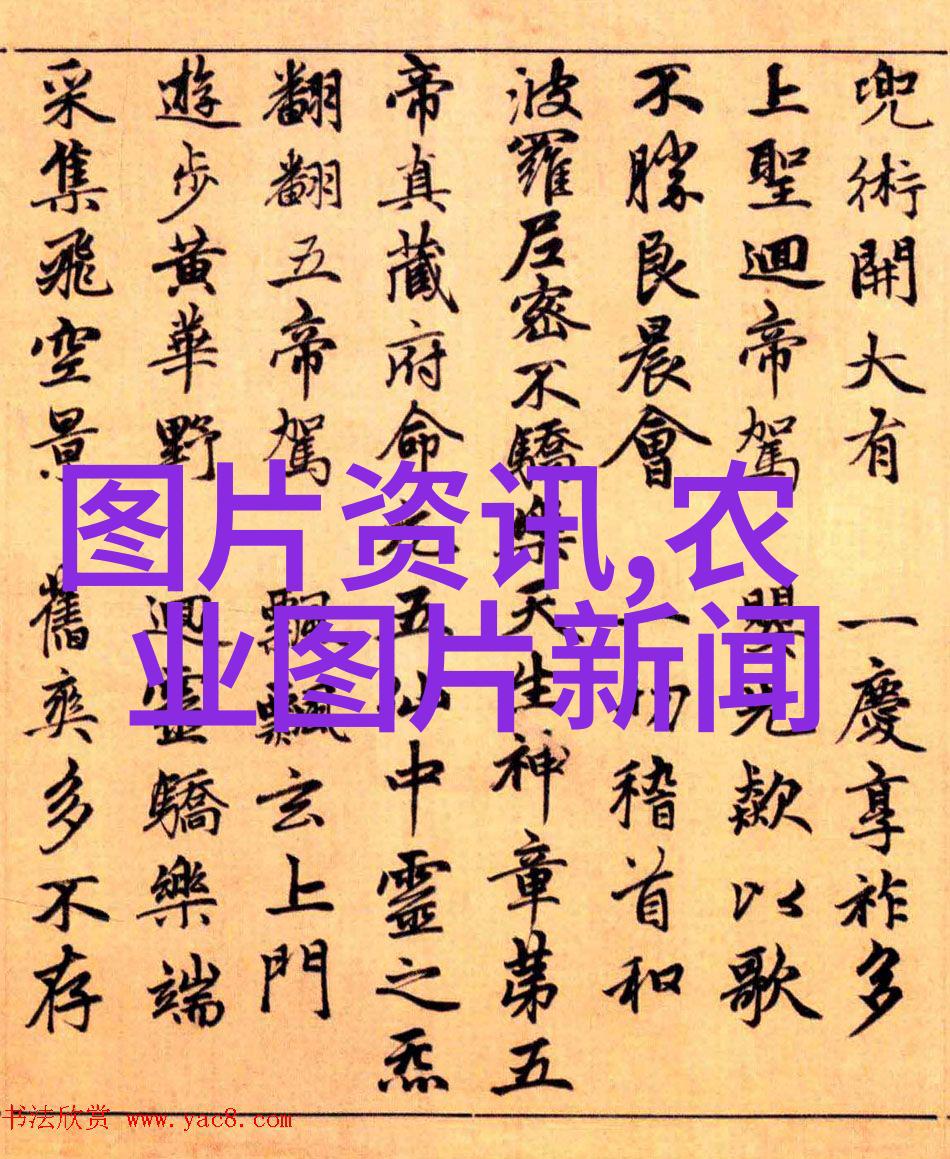 兜術開大有 一慶享祚多
上聖迴帝駕 光欻以歌
不勝良晨會 一切稽首和
波羅尼密不驕樂天生神章第五
帝真藏府命元五仙中靈之炁
翻翻五帝駕 飄飄玄上門
遊步黃華野 迴靈驕樂端
采集飛空景 舊爽多不存
图片资讯,农
业图片新闻
书法欣赏 www.yac8.com